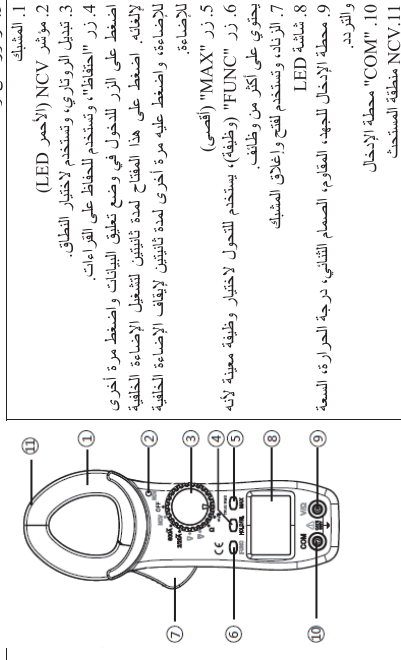 1. المشبك
2. مؤشر NCV (الأحمر LED)
3. تبديل الروتاري، وتستخدم لاختيار النطاق.
4. زر "احتفاظ"، وتستخدم للحفاظ على القراءات.
اضغط على الزر للدخول في وضع تعليق البيانات واضغط مرة أخرى
لإلغائه. اضغط على هذا المفتاح لمدة ثانيتين لتشغيل الإضاءة الخلفية
للإضاءة، واضغط عليه مرة أخرى لمدة ثانيتين لإيقاف الإضاءة الخلفية
للإضاءة.
5. زر "MAX" (أقصى)
6. زر "FUNC" (وظيفة)، يستخدم للتحول لاختيار وظيفة معينة لأنه
يحتوي على أكثر من وظائف.
7. الزناد، وتستخدم لفتح وإغلاق المشبك
8. شاشة LED
9. محطة الإدخال للجهد، المقاوم، الصمام الثنائي، درجة الحرارة، السعة
والتردد.
10. "COM" محطة الإدخال
11.NCV منطقة المستحث
11
1
2
3
4
5
8
9
7
6
10
NCV OFF
HOLD/BL
MAX
CE
COM
VΩ